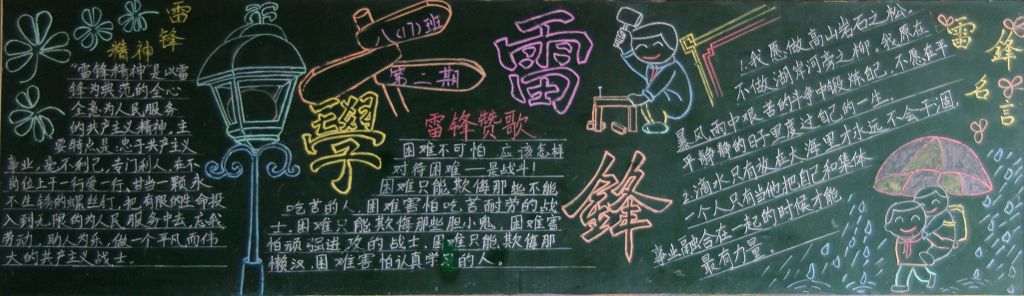 雷锋
精神
"雷锋精神"是以雷
锋为典范的全心
全意为人民服务
的共产主义精神，主
要特点是：忠于共产主义
事业，毫不利己，专门利人，在平
岗位上干一行爱一行，甘当一颗永
不生锈的螺丝钉，把有限的生命投
入到无限的为人民服务中去，忘我
劳动，助人为乐，做一个平凡而伟
大的共产主义战士。
八(17)班
第二期
學
雷
鋒
雷锋赞歌
困难不可怕，应该怎样
对待困难——是战斗！
困难只能欺侮那些不能
吃苦的人，困难害怕吃苦耐劳的战
士。困难只能欺侮那些胆小鬼，困难害
怕顽强进攻的战士，困难只能欺侮那
懒汉，困难害怕认真学习的人。
雷鋒名言
1.我愿做高山岩石之松，
不做湖岸河旁之柳，我愿在
暴风雨中艰苦的斗争中锻炼自己，不愿在平
平静静的日子里度过自己的一生。
2.滴水只有放在大海里才永远不会干涸，
一个人只有当他把自己和集体
事业融合在一起的时候才能
最有力量